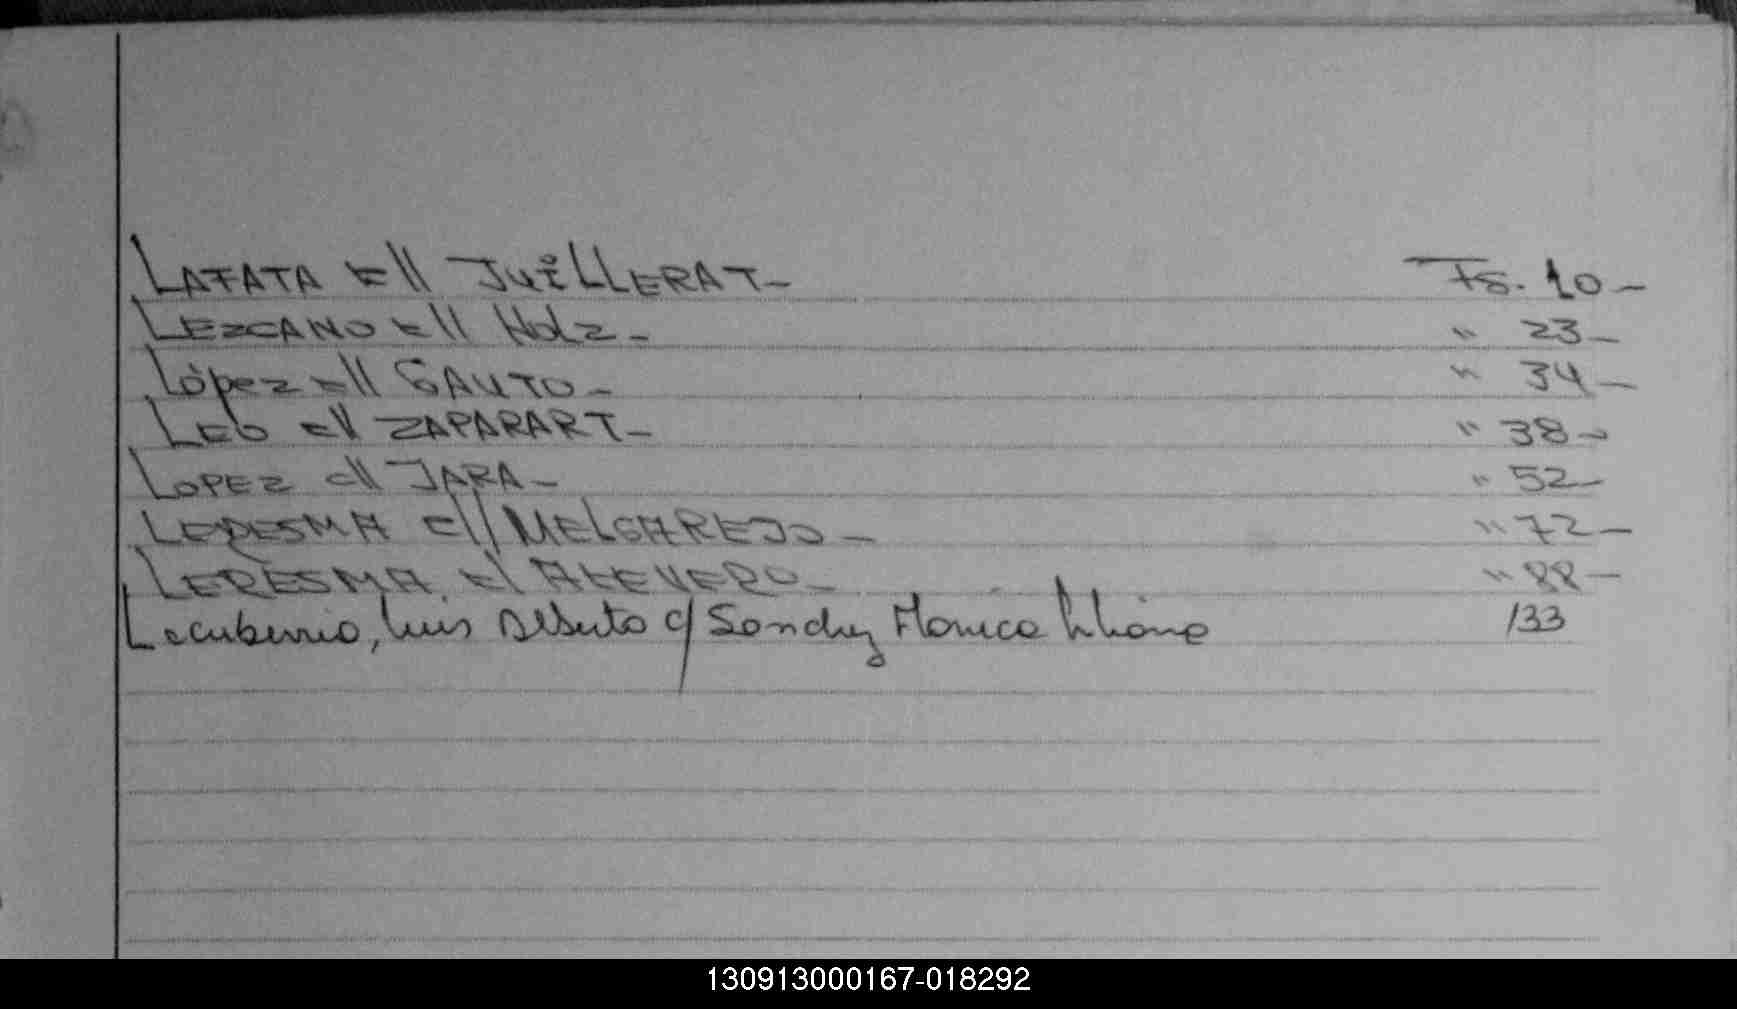 LAFATA c// JuiLLERAT- Fs. 10-
LEZCANO c// HOLZ- " 23-
López c// GAUTO- " 34-
LEO c// ZAPARART- " 38-
LOPEZ c// JARA- " 52-
LEDESMA c// MELGAREJO- " 72-
LEDESMA c/ " 88-
Lecuberrio, Luis Alberto c/ Sanchez Monica Liliana 133
130913000167-018292